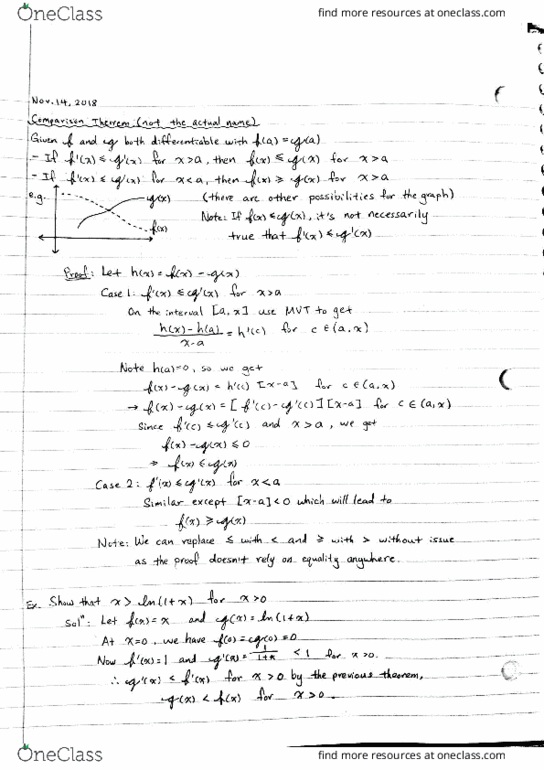 OneClass
find more resources at oneclass.com
Nov. 14, 2018
Comparison Theorem (not the actual name)
Given f and g both differentiable with f(a) = g(a)
- If f'(x) ≤ g'(x) for x>a, then f(x) ≤ g(x) for x>a
- If f'(x) ≤ g'(x) for x<a, then f(x) ≥ g(x) for x>a
e.g. g(x) (there are other possibilities for the graph)
f(x) Note: If f(x) ≤ g(x), it's not necessarily
true that f'(x) ≤ g'(x)
Proof: Let h(x) = f(x) - g(x)
Case 1: f'(x) ≤ g'(x) for x>a
On the interval [a, x] use MVT to get
h(x) - h(a) / x-a = h'(c) for c ∈ (a, x)
Note h(a)=0, so we get
f(x) - g(x) = h'(c) [x-a] for c ∈ (a, x)
→ f(x) - g(x) = [f'(c) - g'(c)][x-a] for c ∈ (a, x)
Since f'(c) ≤ g'(c) and x>a, we get
f(x) - g(x) ≤ 0
⇒ f(x) ≤ g(x)
Case 2: f'(x) ≤ g'(x) for x<a
Similar except [x-a]<0 which will lead to
f(x) ≥ g(x)
Note: We can replace ≤ with < and ≥ with > without issue
as the proof doesn't rely on equality anywhere.
Ex. Show that x > ln(1+x) for x>0
Sol": Let f(x) = x and g(x) = ln(1+x)
At x=0, we have f(0) = g(0) = 0
Now f'(x) = 1 and g'(x) = 1/1+x < 1 for x>0.
∴ g'(x) < f'(x) for x>0 by the previous theorem,
g(x) < f(x) for x>0.
OneClass
find more resources at oneclass.com